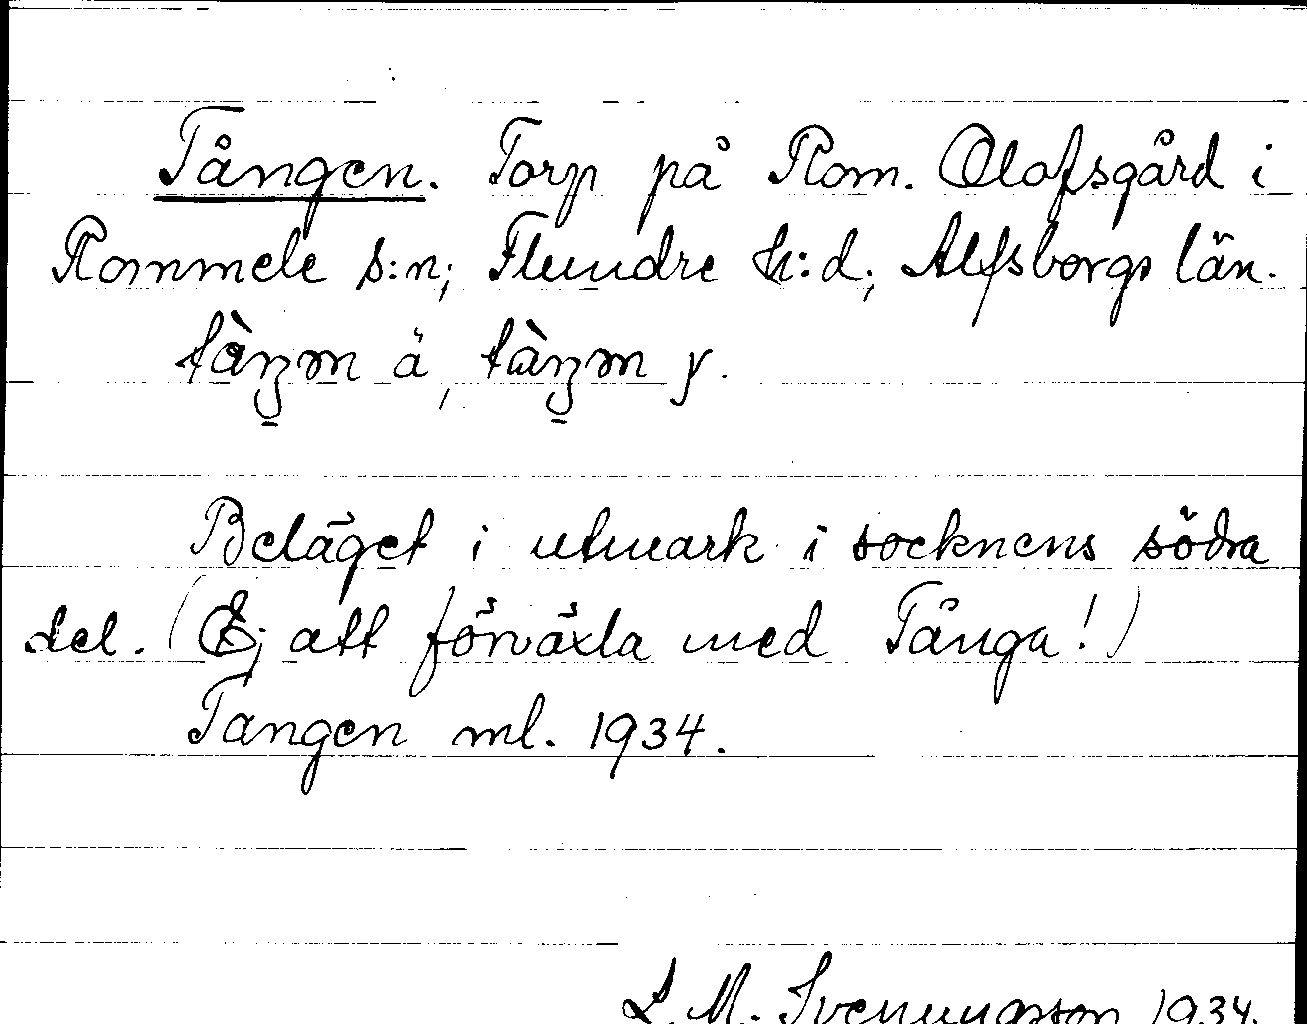 Tången. Torp på Rom. Olofsgård i
Rommele s:n; Flundre h:d; Älfsborgs län.
ä, y.
Beläget i utmark i socknens södra
del. (Ej att förväxla med Tånga!)
Tangen ml. 1934.
L. M. Svenungsson 1934.